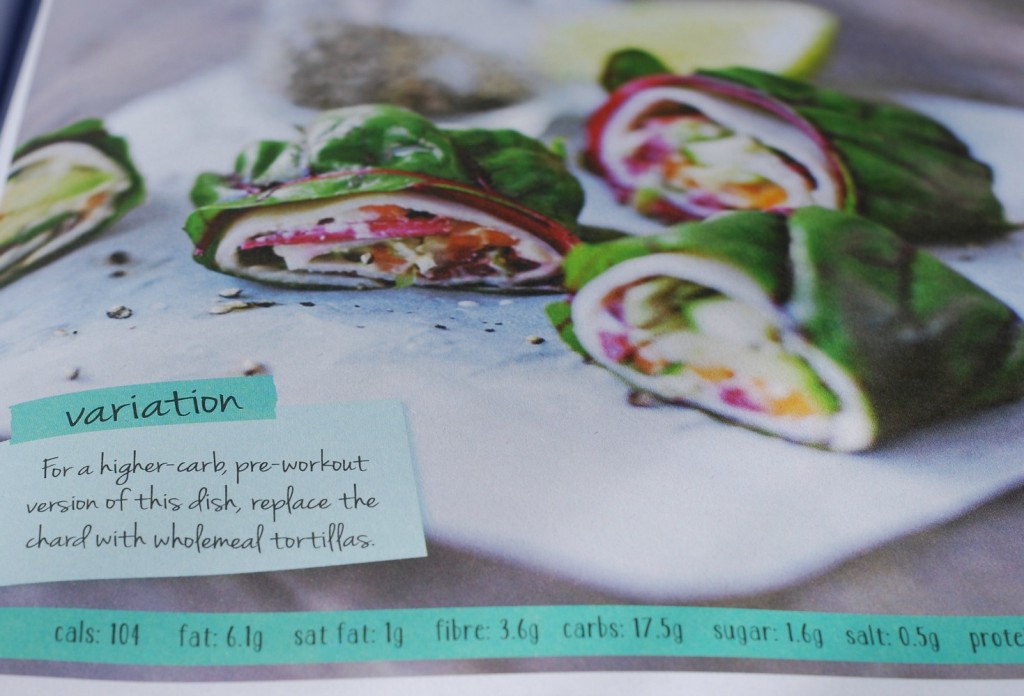 variation
For a higher-carb, pre-workout
version of this dish, replace the
chard with wholemeal tortillas.
cals: 104 fat: 6.1g sat fat: 1g fibre: 3.6g carbs: 17.5g sugar: 1.6g salt: 0.5g prote